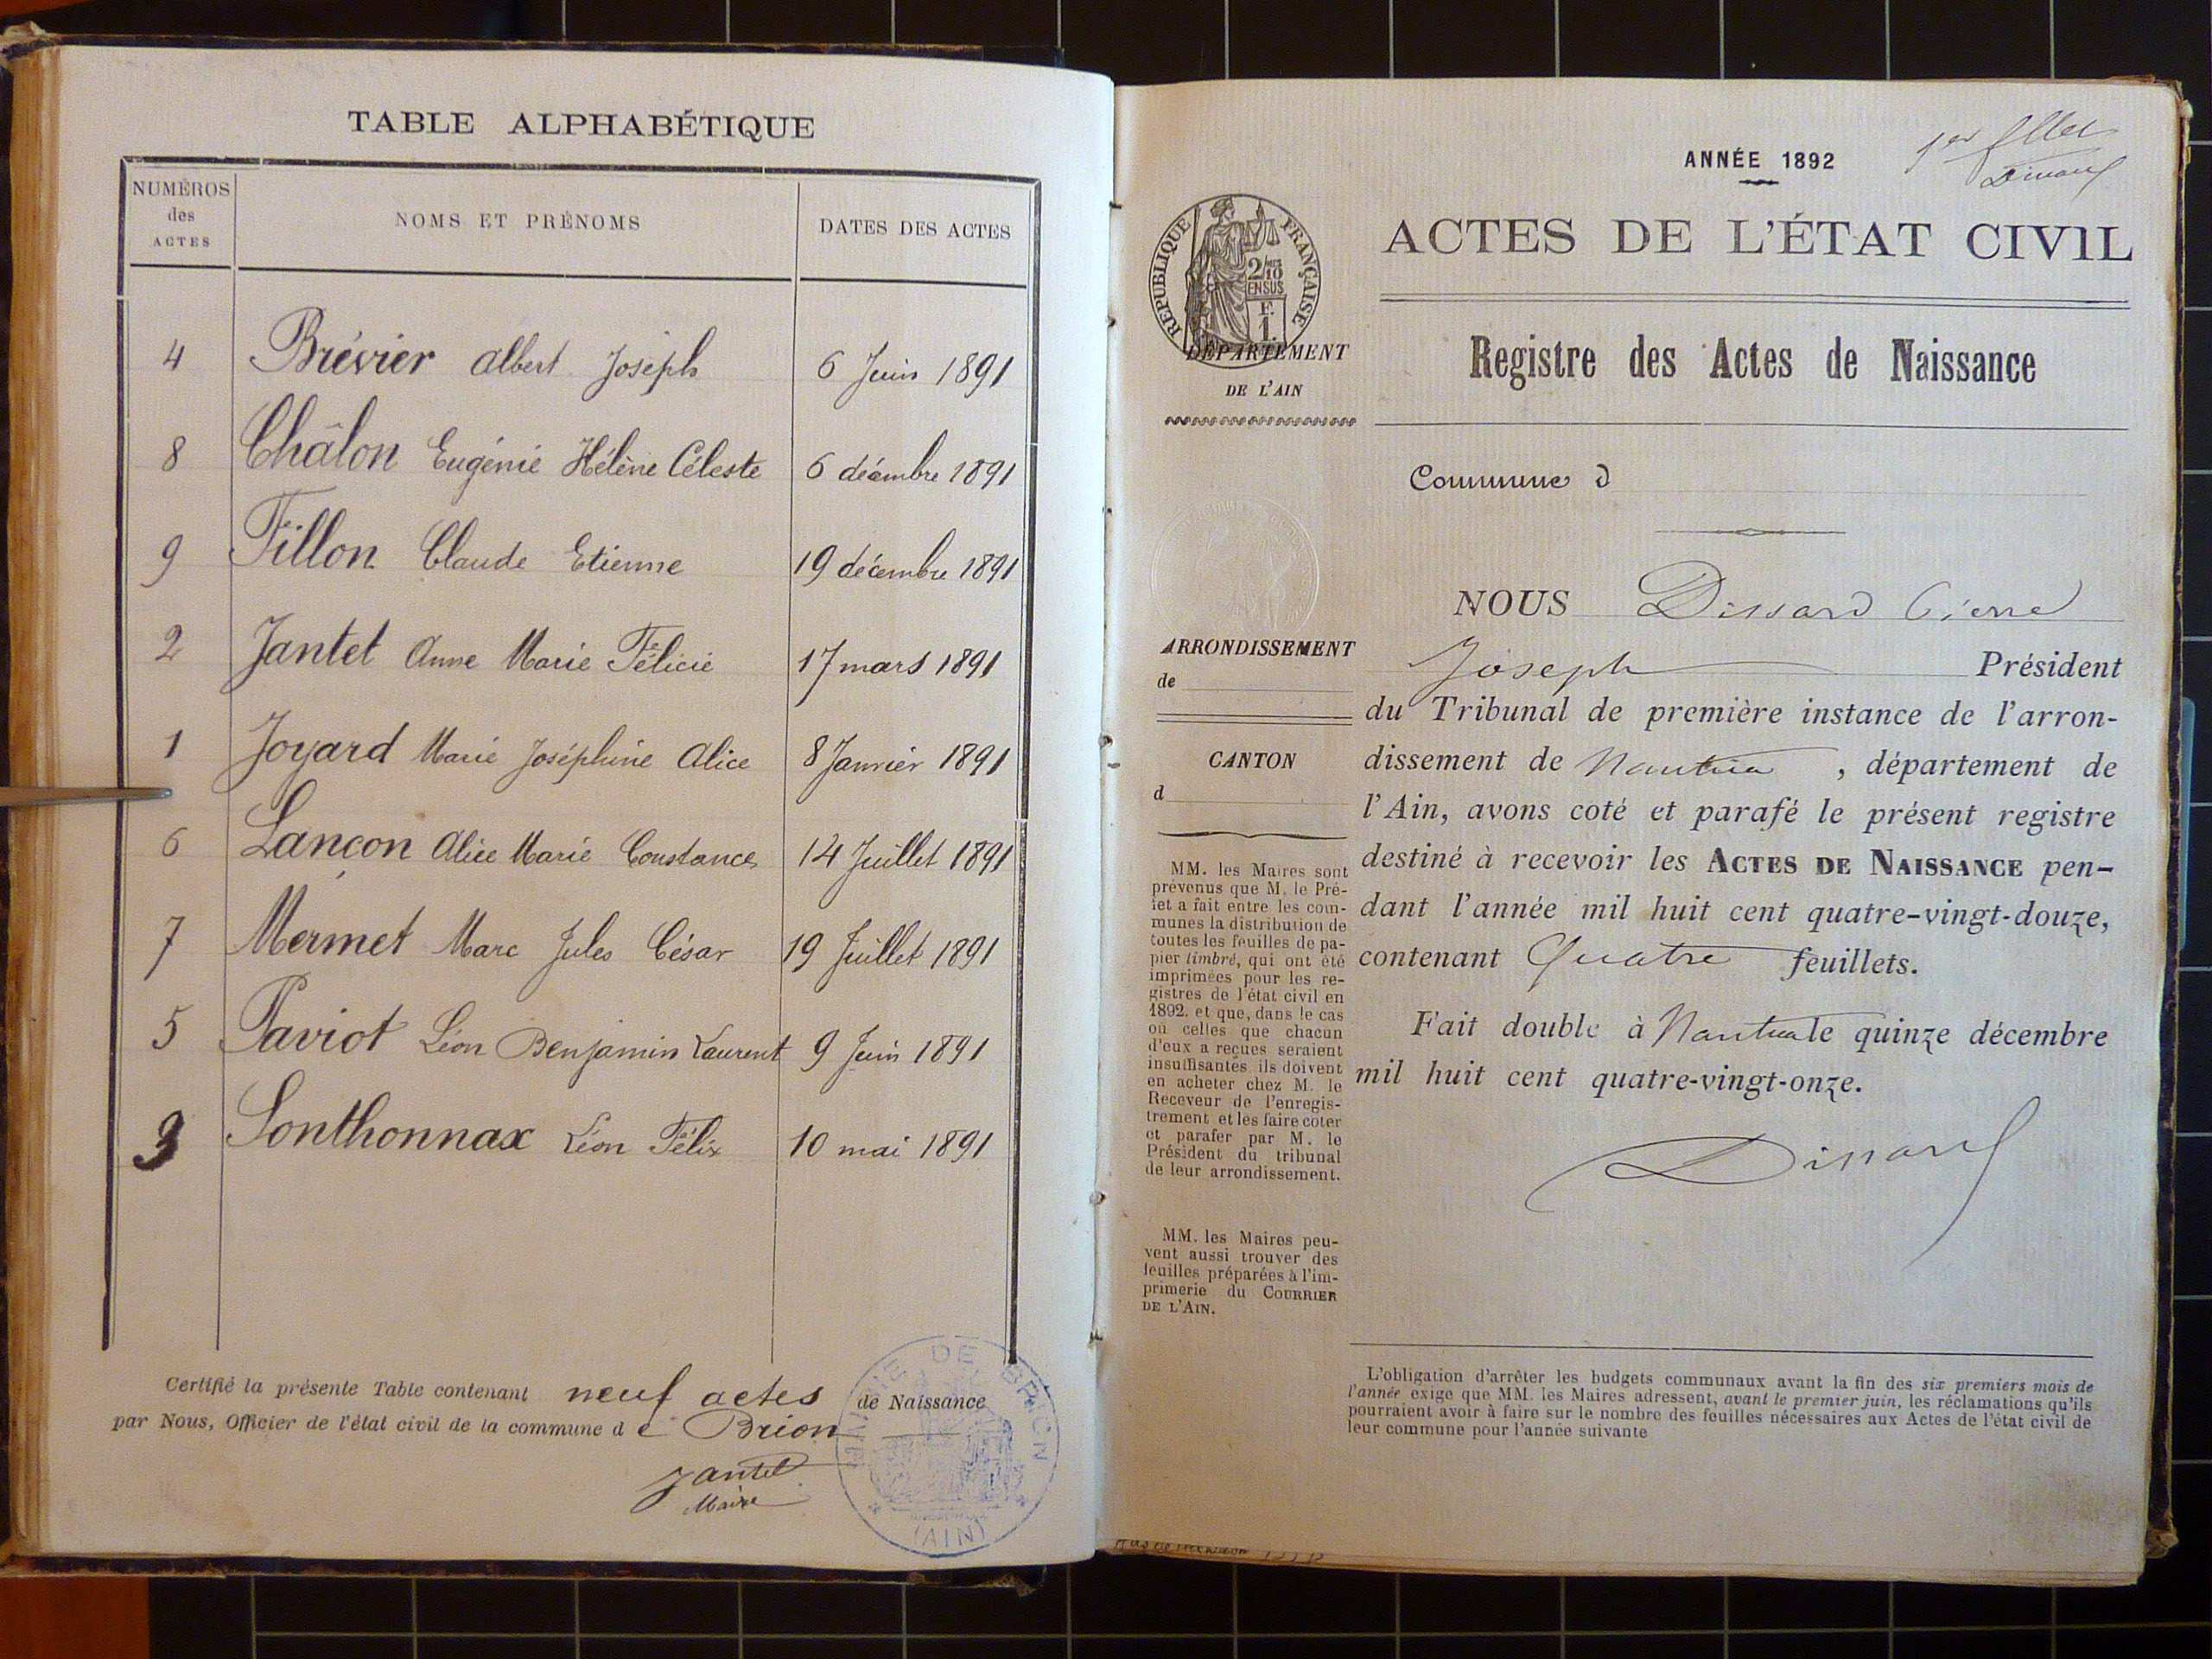 TABLE ALPHABÉTIQUE
NUMÉROS des ACTES NOMS ET PRÉNOMS DATES DES ACTES
4 Brévier Albert Joseph 6 Juin 1891
8 Châlon Eugénie Hélène Céleste 6 décembre 1891
9 Fillon Claude Etienne 19 décembre 1891
2 Jantet Anne Marie Félicie 17 mars 1891
1 Joyard Marie Joséphine Alice 8 Janvier 1891
6 Lançon Alice Marie Constance 14 Juillet 1891
7 Mermet Marc Jules César 19 Juillet 1891
5 Paviot Léon Benjamin Laurent 9 Juin 1891
3 Sonthonnax Léon Félix 10 mai 1891
Certifié la présente Table contenant neuf actes de Naissance
par Nous, Officier de l'état civil de la commune de Brion
Jantet
Maire
MAIRIE DE BRION
(AIN)
ANNÉE 1892
1er
Dissard
RÉPUBLIQUE FRANÇAISE
2/10
EN SUS
F.
1
ACTES DE L'ÉTAT CIVIL
DÉPARTEMENT
DE L'AIN
Registre des Actes de Naissance
Commune d
ARRONDISSEMENT
de
CANTON
d
NOUS Dissard Pierre
Joseph Président
du Tribunal de première instance de l'arron-
dissement de Nantua, département de
l'Ain, avons coté et parafé le présent registre
destiné à recevoir les ACTES DE NAISSANCE pen-
dant l'année mil huit cent quatre-vingt-douze,
contenant Quatre feuillets.
Fait double à Nantua le quinze décembre
mil huit cent quatre-vingt-onze.
Dissard
MM. les Maires sont
prévenus que M. le Pré-
fet a fait entre les com-
munes la distribution de
toutes les feuilles de pa-
pier timbré, qui ont été
imprimées pour les re-
gistres de l'état civil en
1892. et que, dans le cas
où celles que chacun
d'eux a reçues seraient
insuffisantes ils doivent
en acheter chez M. le
Receveur de l'enregis-
trement et les faire coter
et parafer par M. le
Président du tribunal
de leur arrondissement.
MM. les Maires peu-
vent aussi trouver des
feuilles préparées à l'im-
primerie du COURRIER
DE L'AIN.
L'obligation d'arrêter les budgets communaux avant la fin des six premiers mois de
l'année exige que MM. les Maires adressent, avant le premier juin, les réclamations qu'ils
pourraient avoir à faire sur le nombre des feuilles nécessaires aux Actes de l'état civil de
leur commune pour l'année suivante